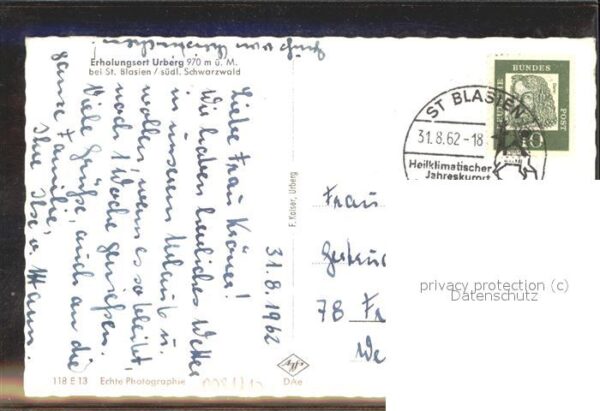 Erholungsort Urberg 970 m ü. M.
bei St. Blasien / südl. Schwarzwald
31.8.1962
Liebe Frau Krämer!
Wir haben herrliches Wetter
in unserem Urlaub u.
wollen, wenn es so bleibt,
noch 1 Woche genießen.
Viele Grüße, auch an die
ganze Familie,
Ihre Ilse u. Mann.
118 E 13 Echte Photographie
F. Kaiser, Urberg
D/Ae
DEUTSCHE BUNDESPOST
10
ST BLASIEN
31.8.62-18
Heilklimatischer
Jahreskurort
Frau
78 Fr
privacy protection (c)
Datenschutz